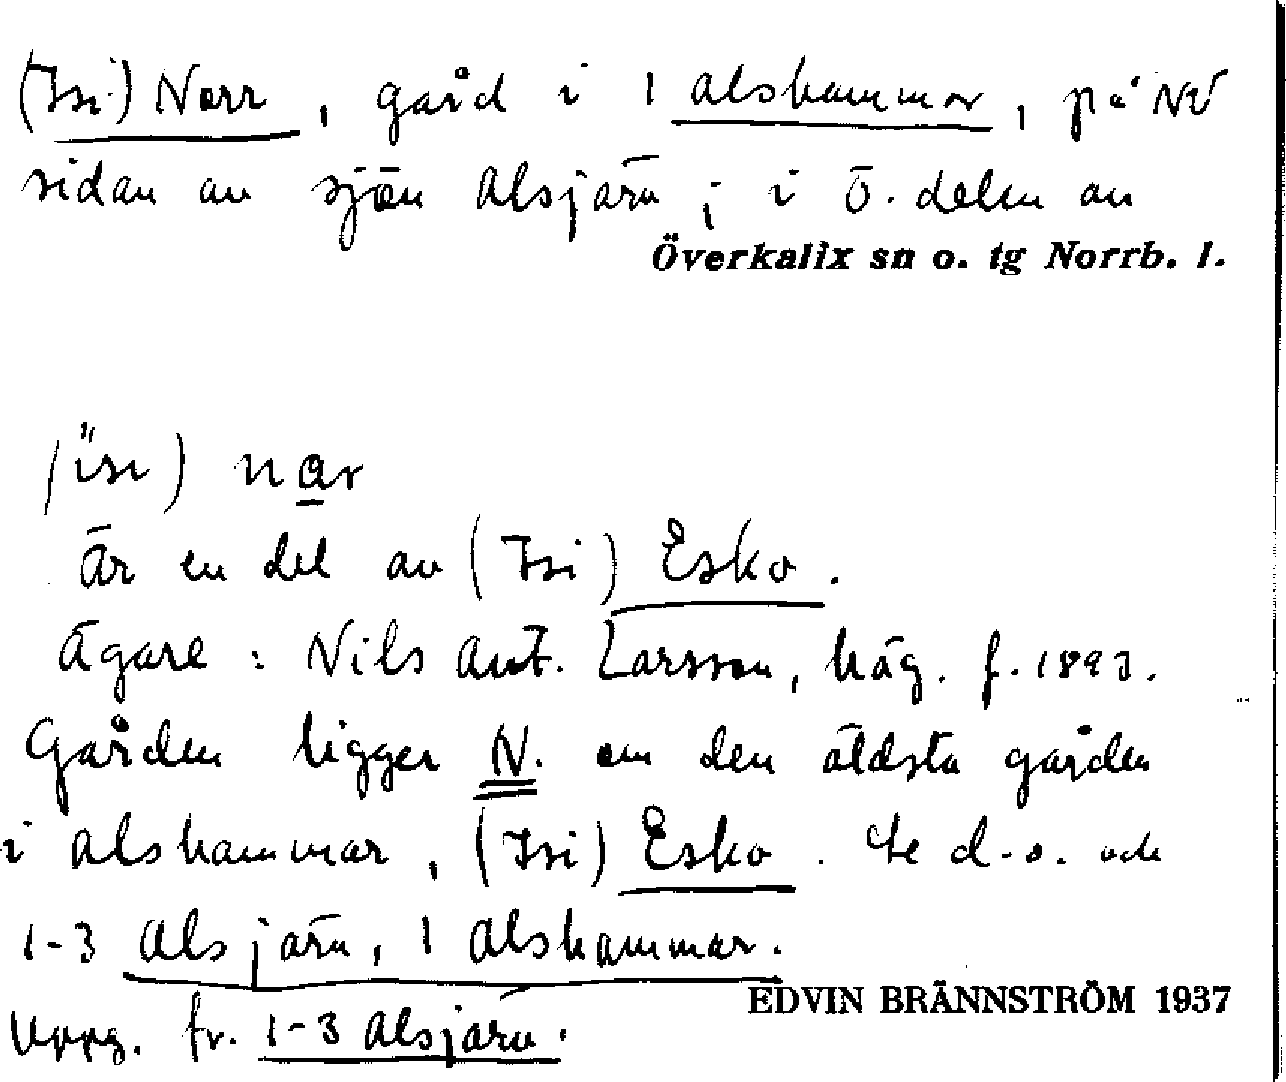 (Isi) Norr, gård i 1 Alshammar, på NV
sidan av sjön Alsjärv; i ö. delen av
Överkalix sn o. tg Norrb. l.
(ïsı) nar
Är en del av (Isi) Esko.
Ägare: Nils Ant. Larsson, häg. f. 1893.
Gården ligger N. om den äldsta gården
i Alshammar, (Isi) Esko. Se d.o. och
1-3 Alsjärv, 1 Alshammar.
EDVIN BRÄNNSTRÖM 1937
Uppg. fr. 1-3 Alsjärv.